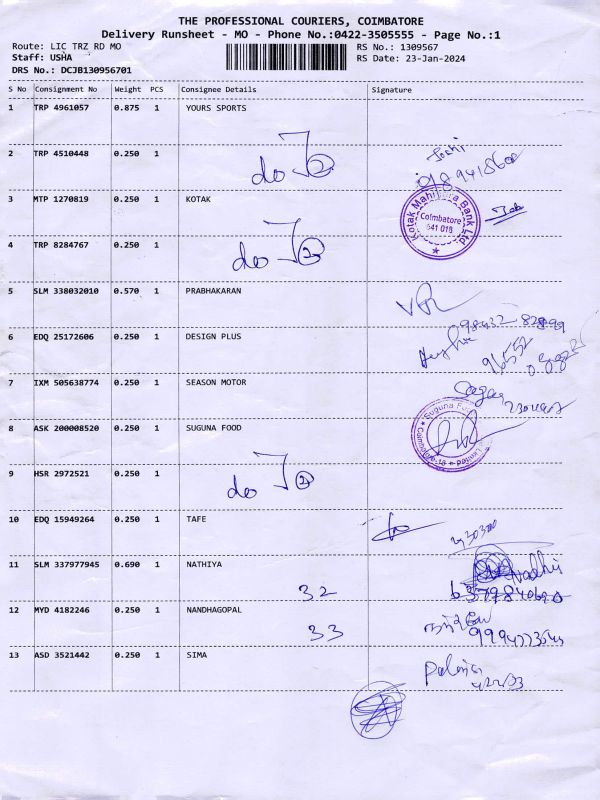 THE PROFESSIONAL COURIERS, COIMBATORE
Delivery Runsheet - MO - Phone No.:0422-3505555 - Page No.:1
Route: LIC TRZ RD MO
RS No.: 1309567
Staff: USHA
RS Date: 23-Jan-2024
DRS No.: DCJB130956701
S No Consignment No Weight PCS Consignee Details Signature
1 TRP 4961057 0.875 1 YOURS SPORTS
2 TRP 4510448 0.250 1 do
3 MTP 1270819 0.250 1 KOTAK
Kotak Mahindra Bank Ltd
Coimbatore
641 018
4 TRP 8284767 0.250 1 do
5 SLM 338032010 0.570 1 PRABHAKARAN
6 EDQ 25172606 0.250 1 DESIGN PLUS
7 IXM 505638774 0.250 1 SEASON MOTOR
8 ASK 200008520 0.250 1 SUGUNA FOOD
9 HSR 2972521 0.250 1 do
10 EDQ 15949264 0.250 1 TAFE
11 SLM 337977945 0.690 1 NATHIYA 32
12 MYD 4182246 0.250 1 NANDHAGOPAL 33
13 ASD 3521442 0.250 1 SIMA